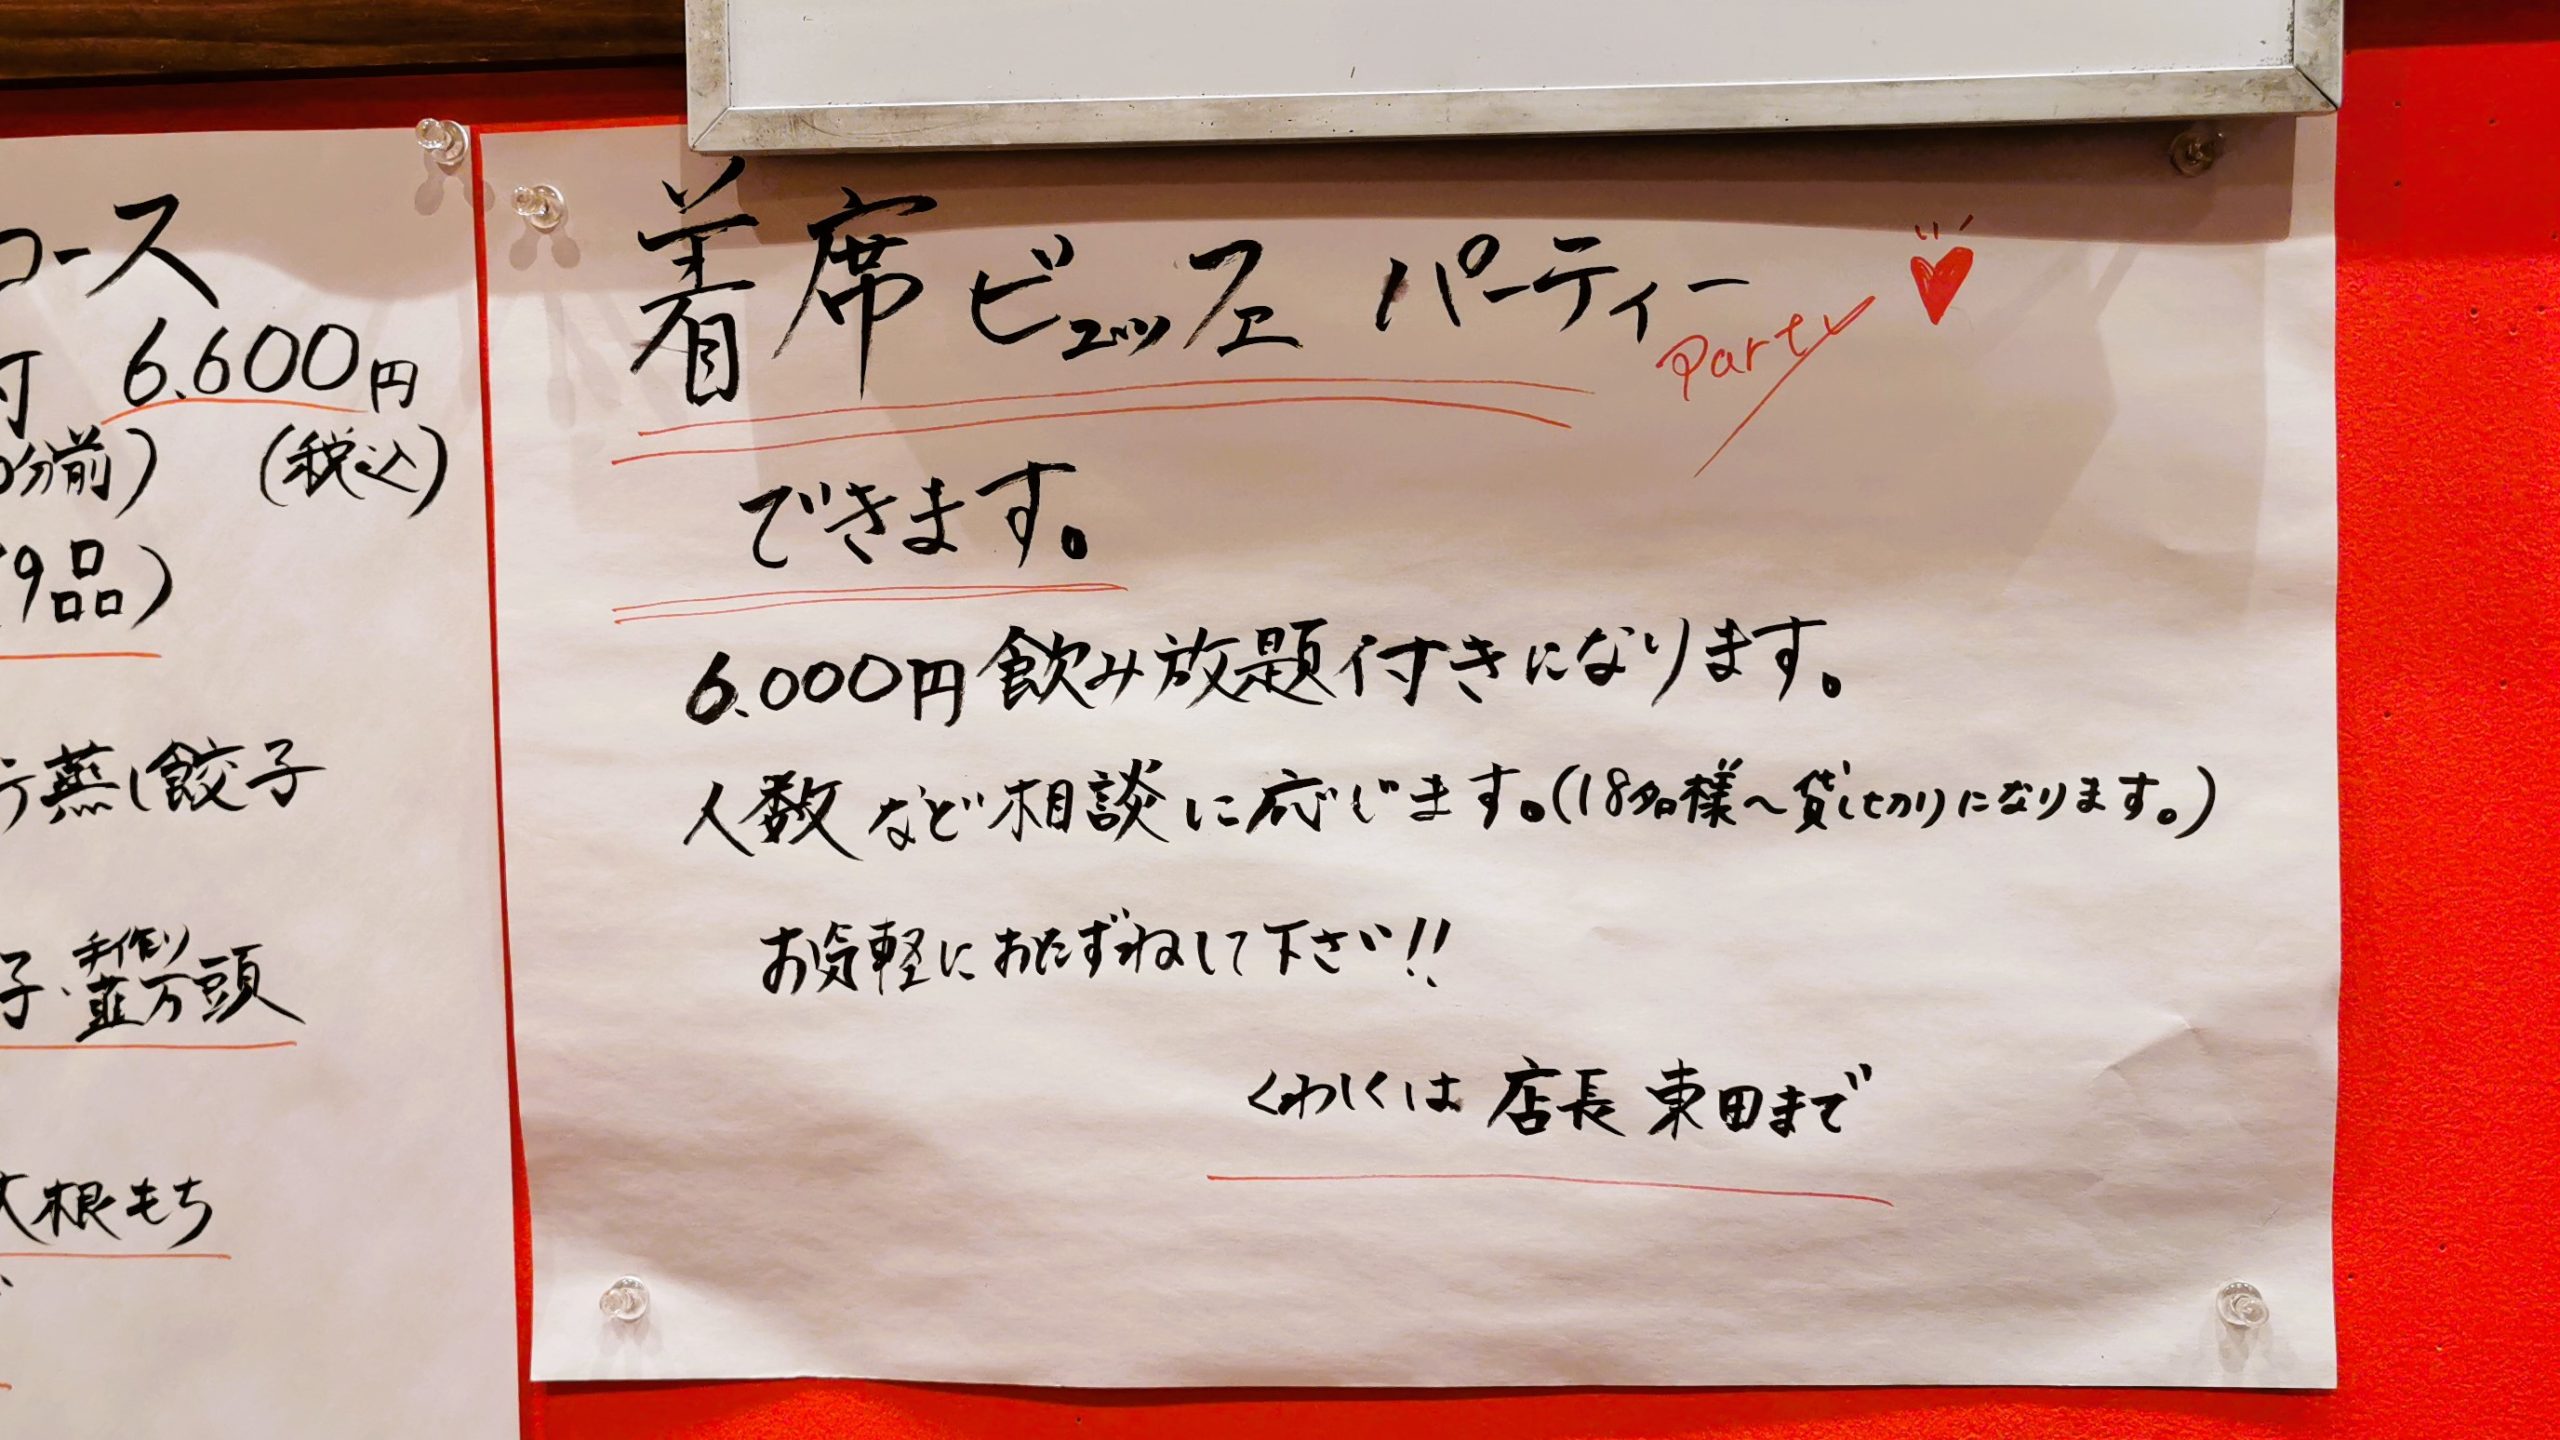 コース
付 6.600円
0分前) (税込)
(9品)
蒸し餃子
子・手作り韮万頭
大根もち
着席ビュッフェ パーティー
Party
できます。
6.000円飲み放題付きになります。
人数など相談に応じます。(18名様〜貸し切りになります。)
お気軽におたずねして下さい!!
くわしくは 店長 東田まで